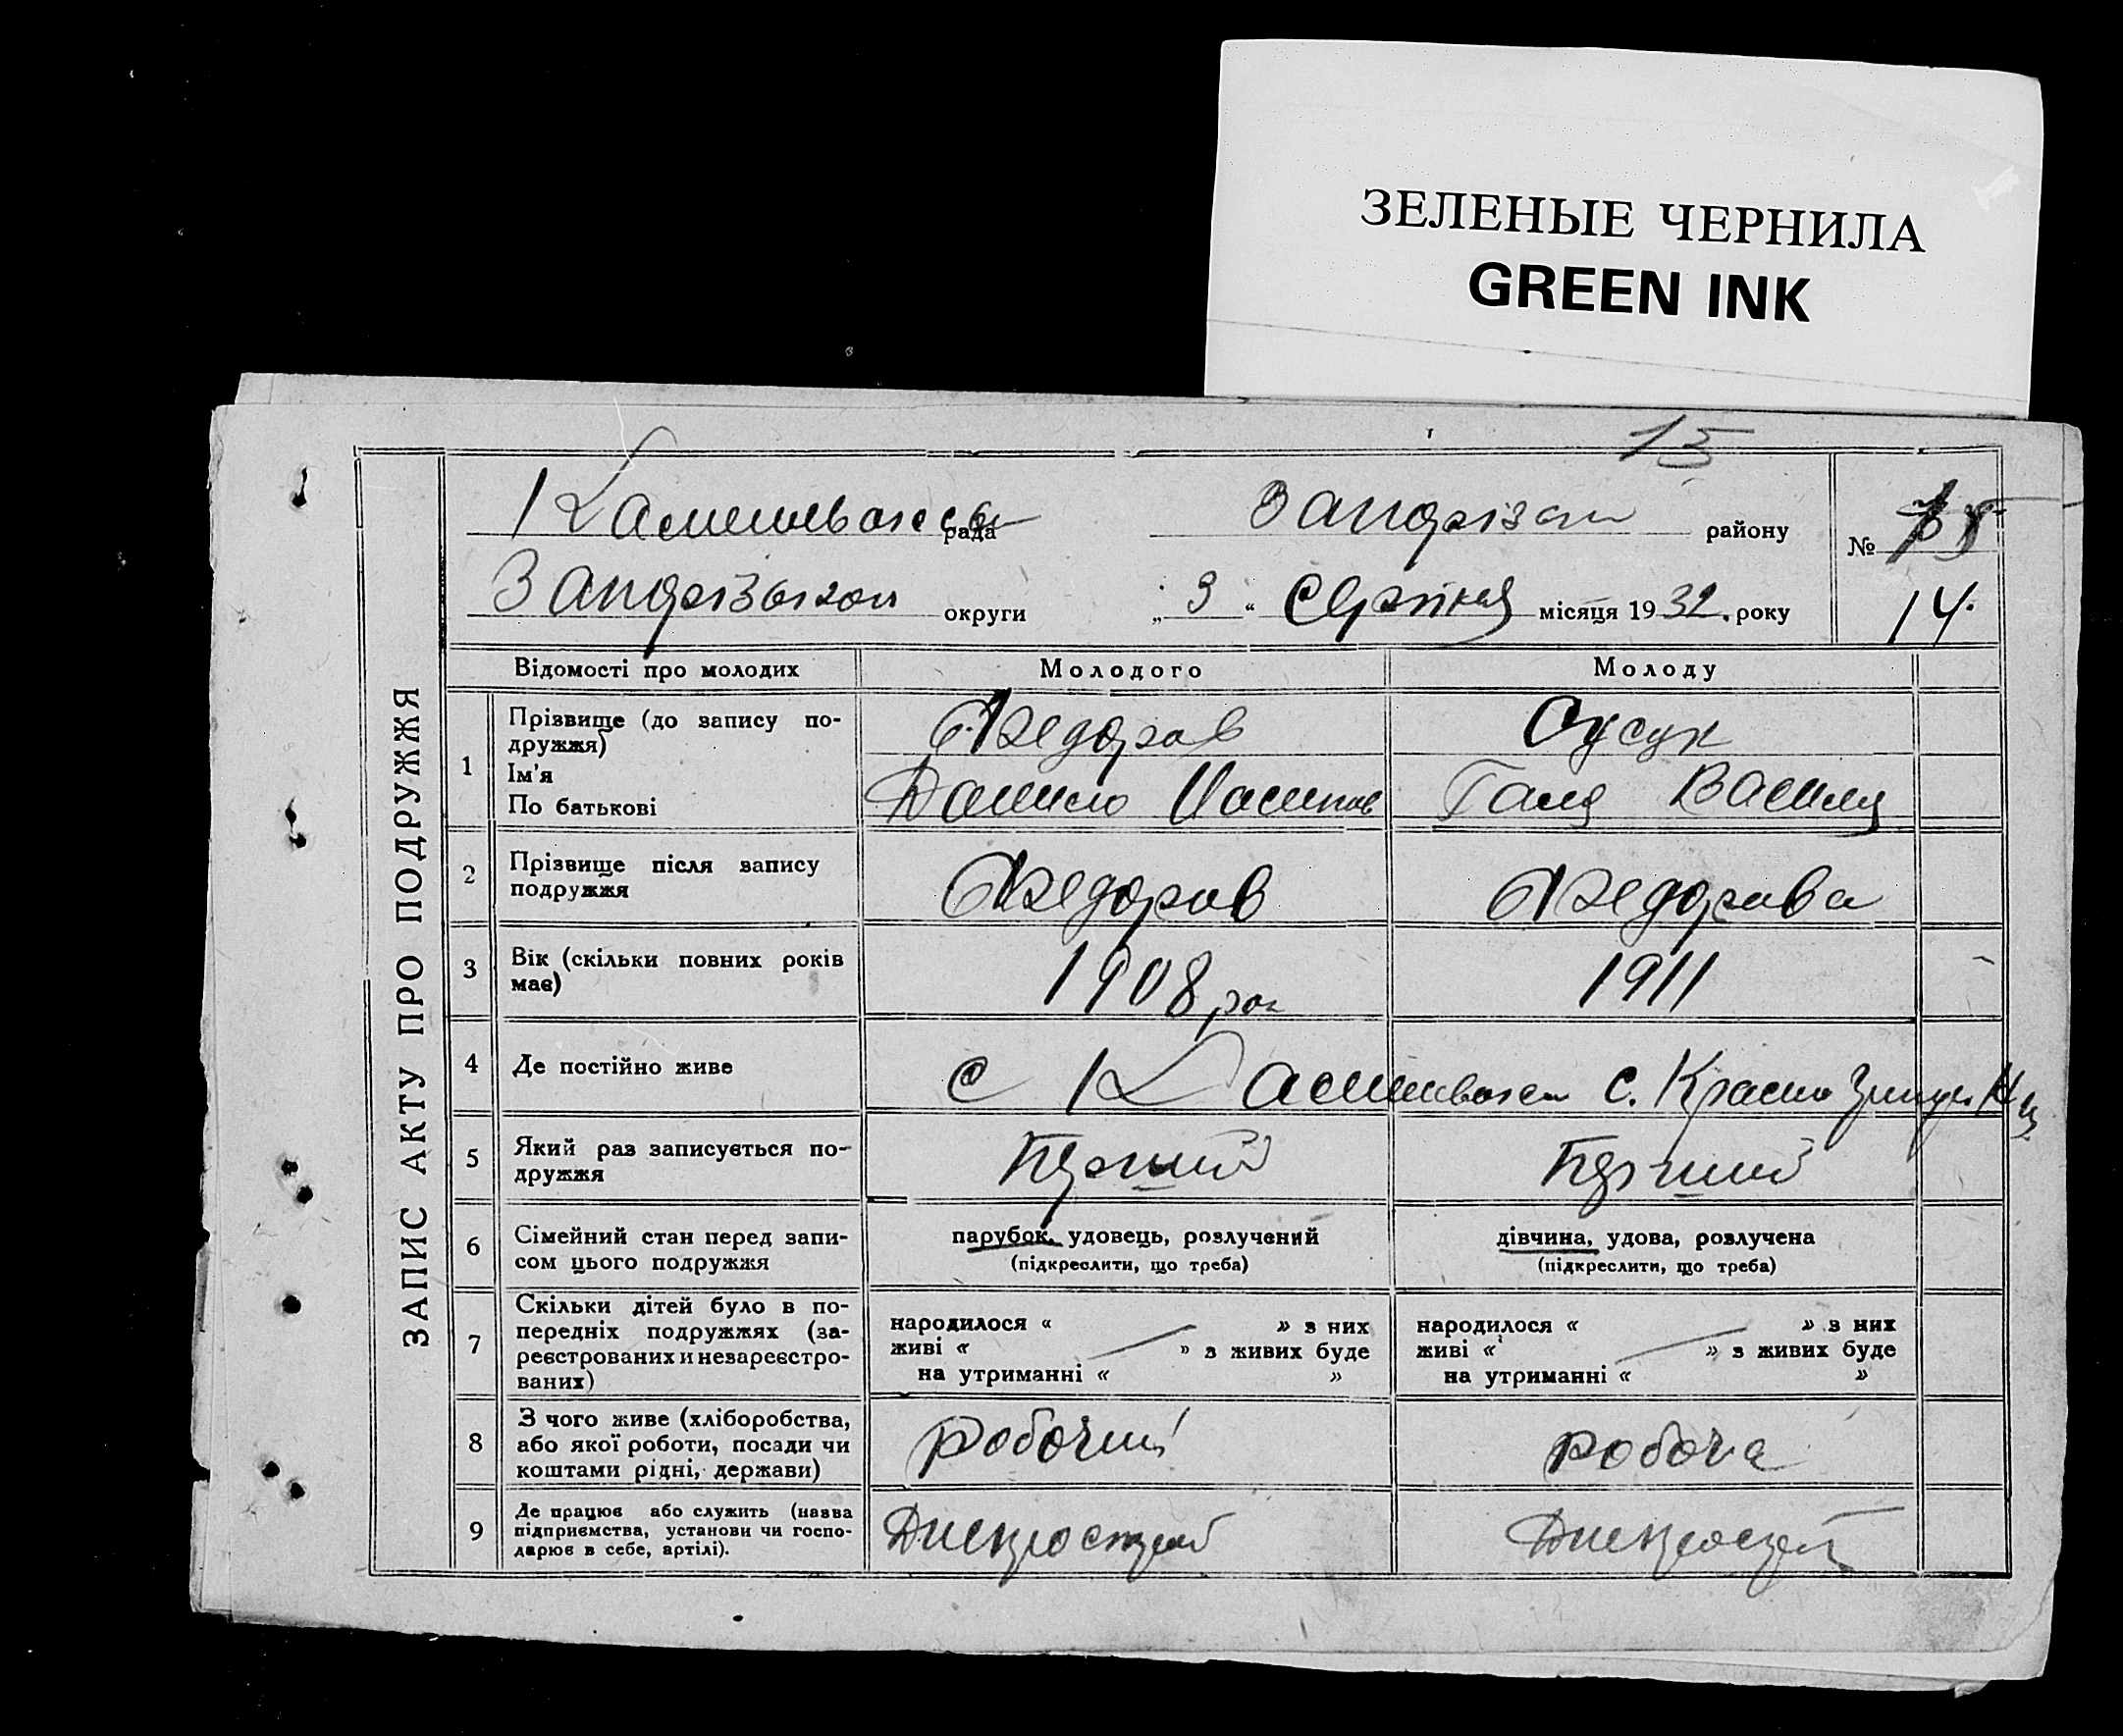 ЗЕЛЕНЫЕ ЧЕРНИЛА
GREEN INK
15
рада
району
№
округи
„ 3 “ Серпня місяця 1932. року
14.
ЗАПИС АКТУ ПРО ПОДРУЖЖЯ
Відомості про молодих
Молодого
Молоду
1
Прізвище (до запису по-
дружжя)
Ім'я
По батькові
Федоров
Сусук
Данило
Ганя Васили
2
Прізвище після запису
подружжя
Федоров
Федорова
3
Вік (скільки повних років
має)
1908 рок
1911
4
Де постійно живе
с
с.
5
Який раз записується по-
дружжя
Перший
Перший
6
Сімейний стан перед запи-
сом цього подружжя
парубок, удовець, розлучений
(підкреслити, що треба)
дівчина, удова, розлучена
(підкреслити, що треба)
7
Скільки дітей було в по-
передніх подружжях (за-
реєстрованих и незареєстро-
ваних)
народилося « » з них
живі « » з живих буде
на утриманні « »
народилося « » з них
живі « » з живих буде
на утриманні « »
8
З чого живе (хліборобства,
або якої роботи, посади чи
коштами рідні, держави)
робочий
робоча
9
Де працює або служить (назва
підприємства, установи чи госпо-
дарює в себе, артілі).